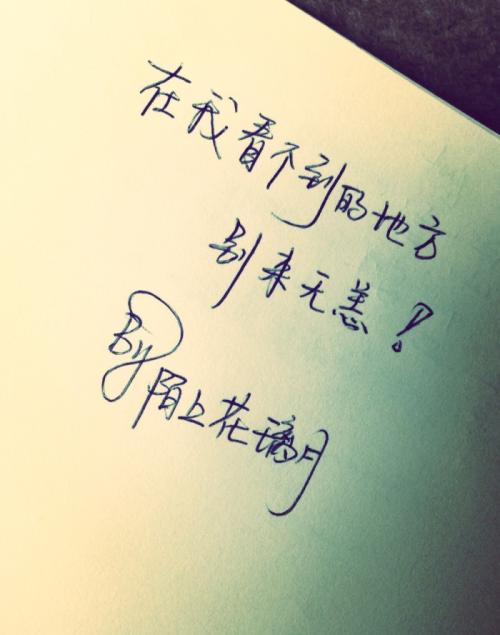 在我看不到的地方
别来无恙!
By陌上花璃月